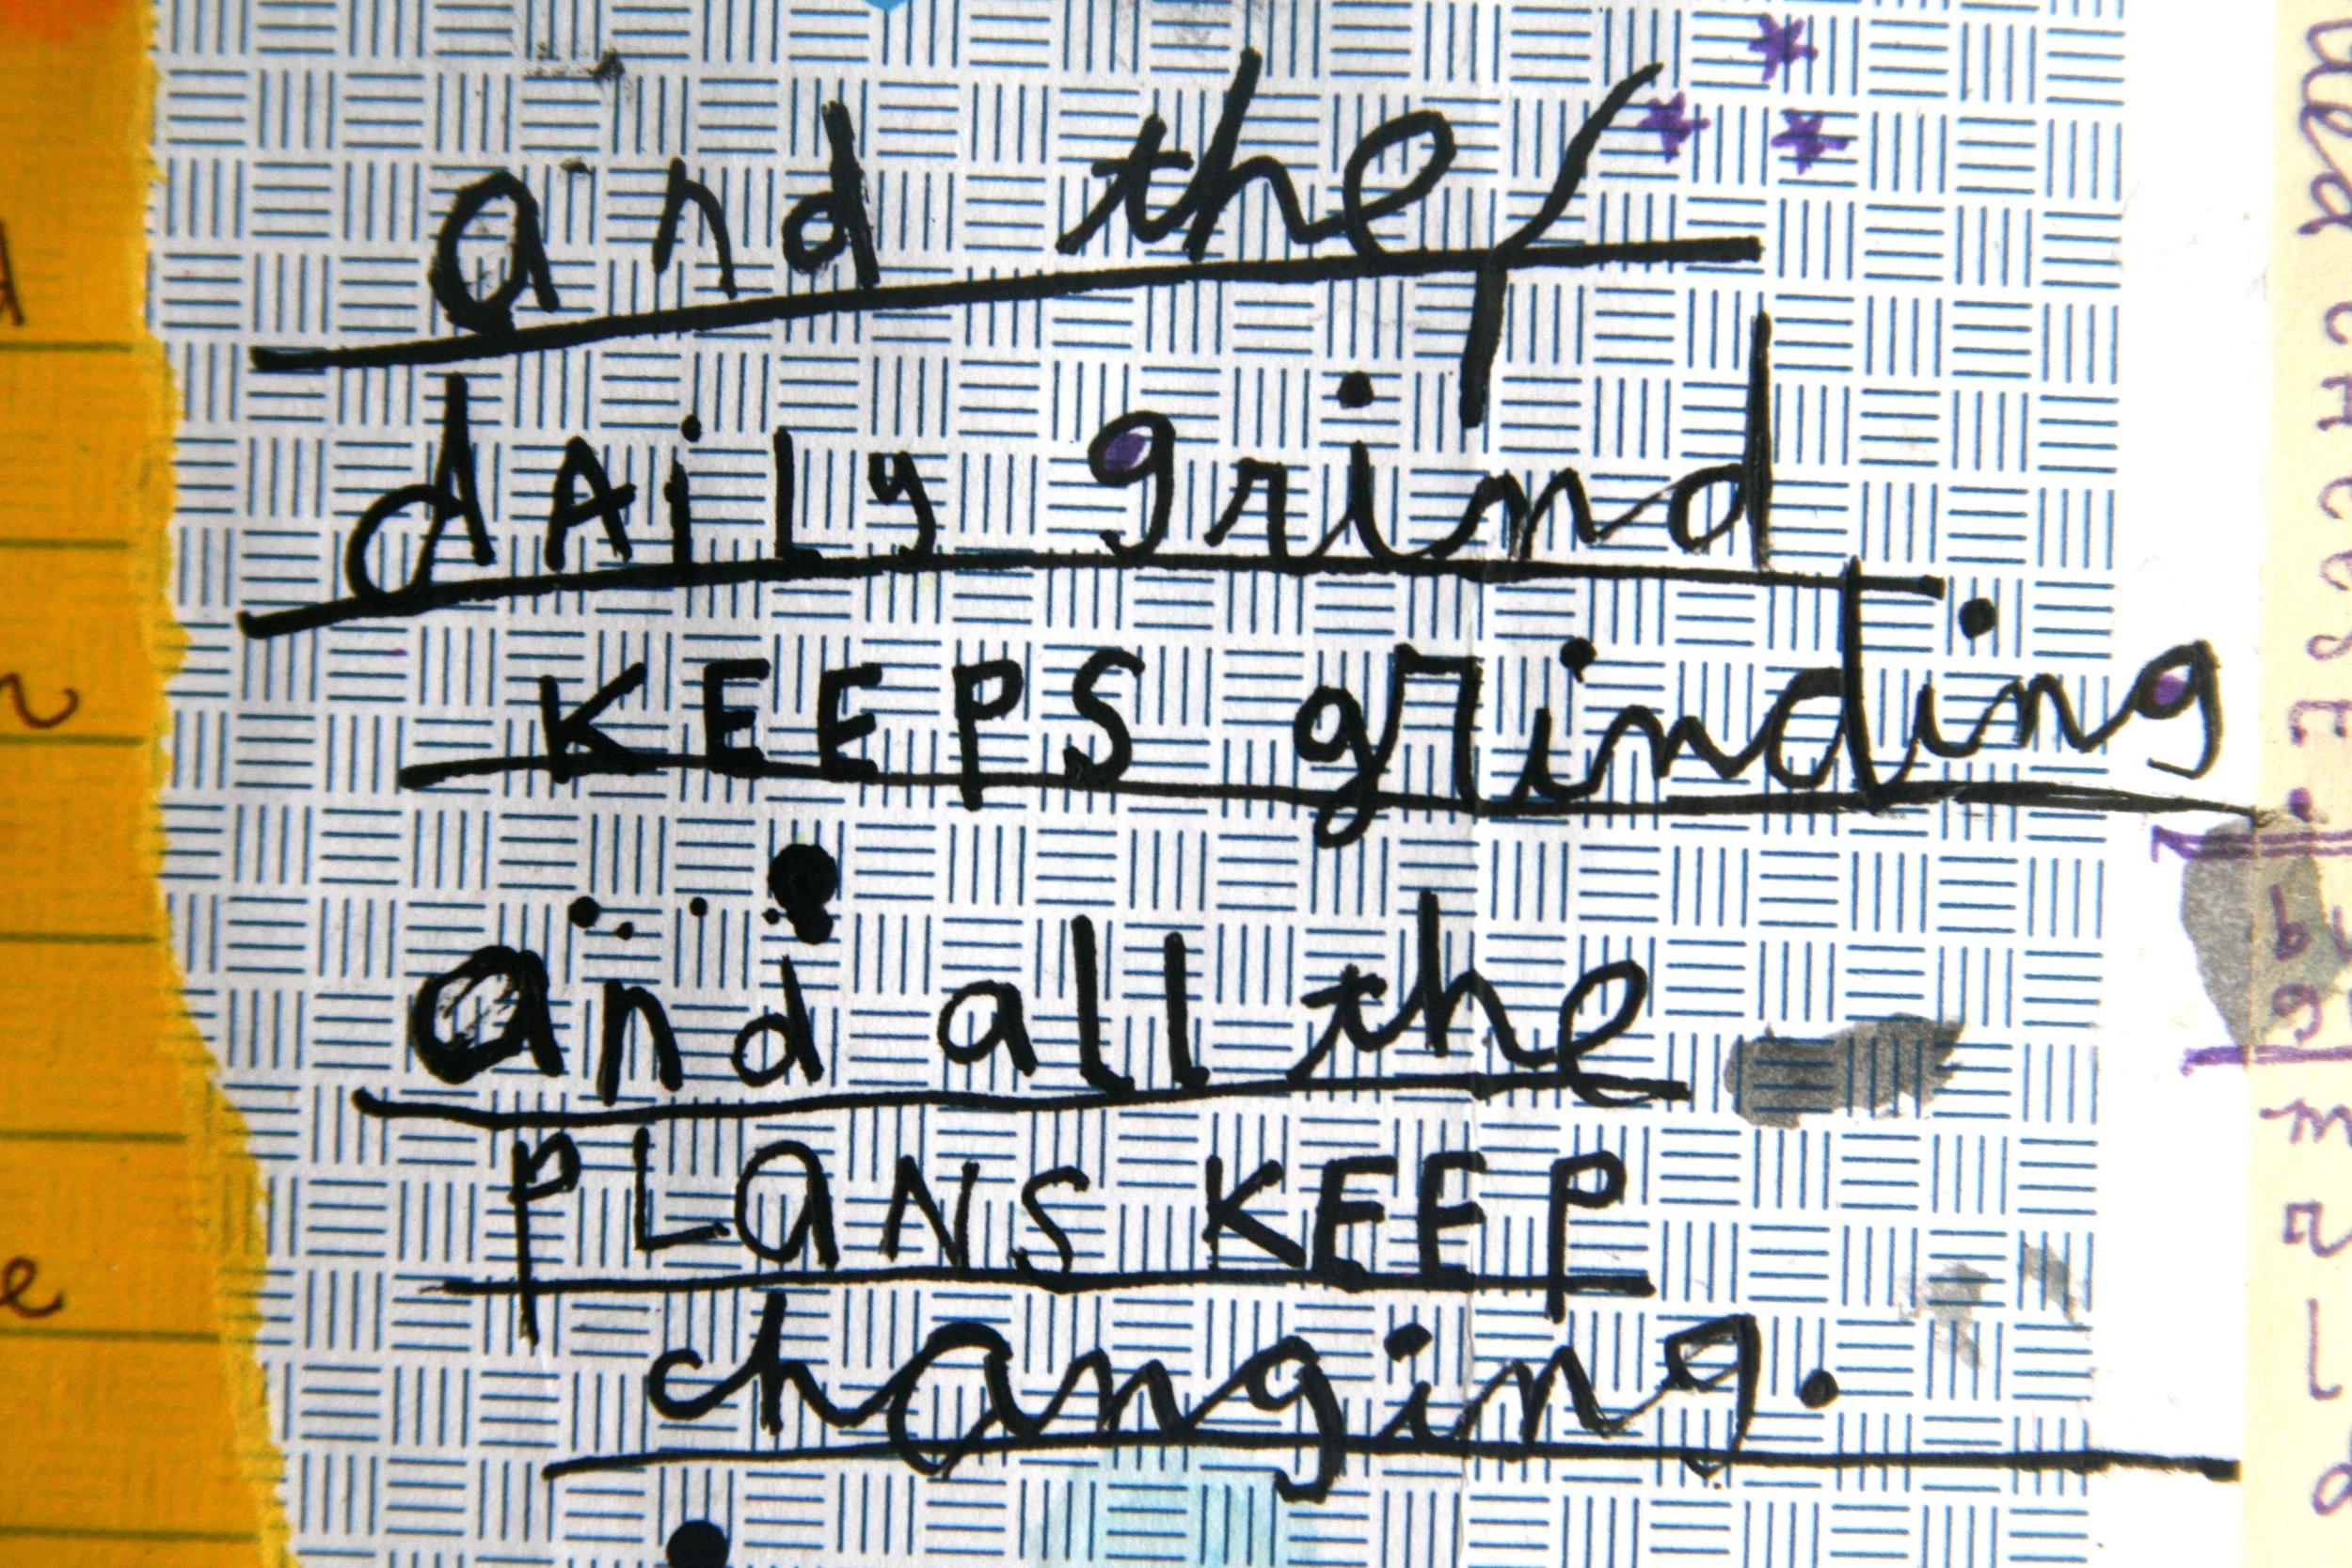 and the
dAiLy grind
KEEPS grinding
and all the
PLaNS KEEP
changing.